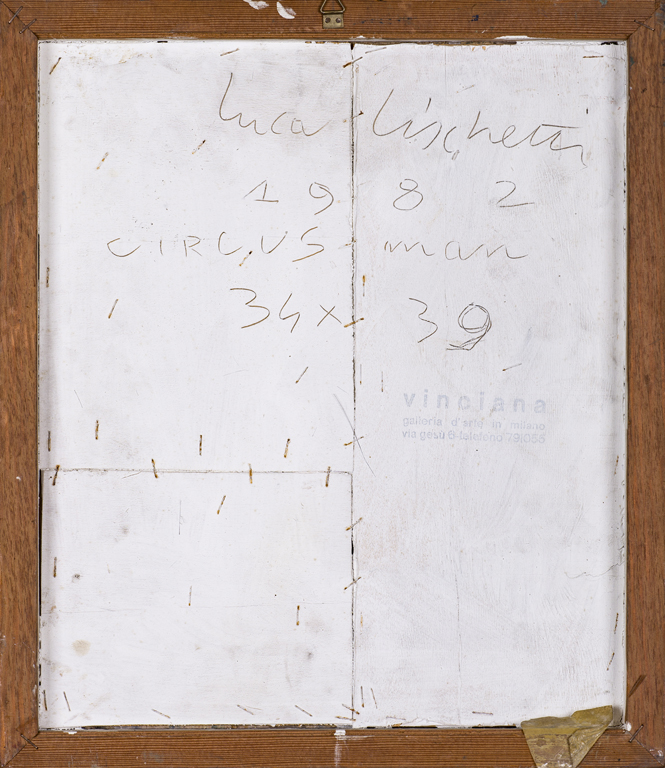 Luca Lischetti
1982
CIRCUS man
34x39
vinciana
galleria d'arte in milano
via gesù 6-telefono 791055